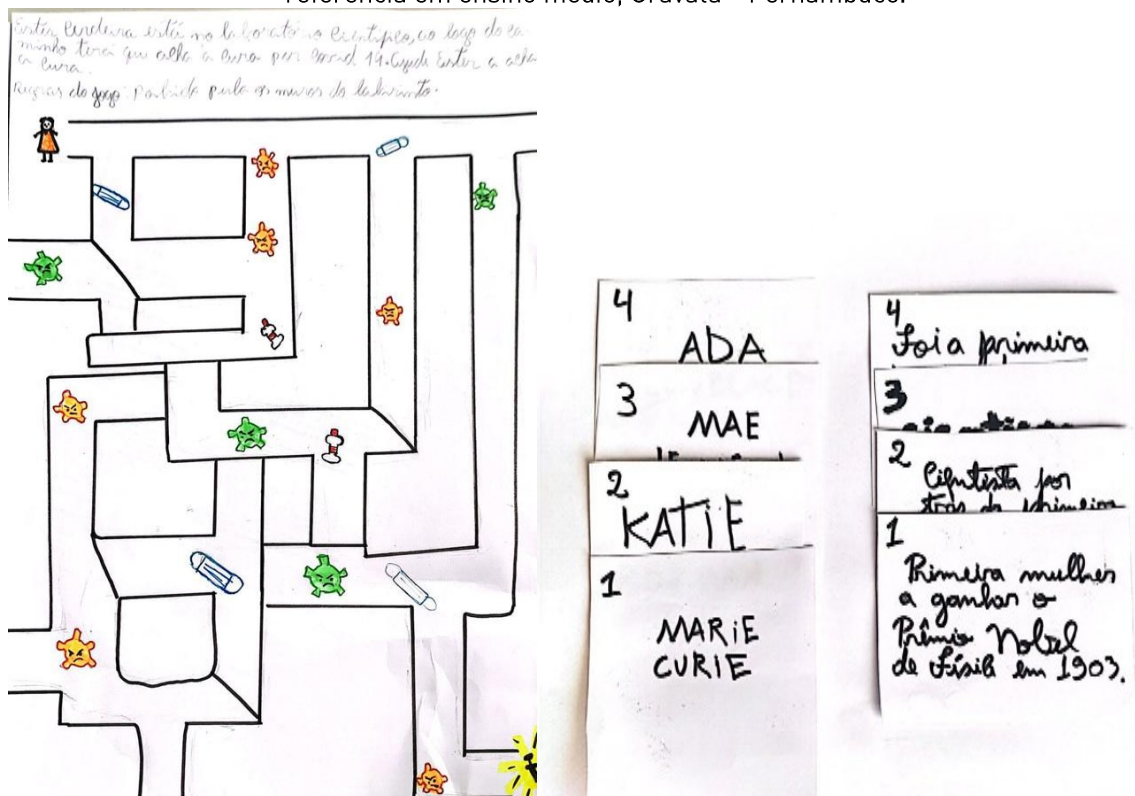 referência em ensino médio, Gravatá – Pernambuco.
Ester, Cerdeira está no laboratório científico, ao logo do ca-
minho terá que acha a cura por Covid 19. Ajude Ester a acha
a cura.
Regras do jogo: Proibido pula os muros do labirinto.
4
ADA
3
MAE
2
KATIE
1
MARIE
CURIE
4
Foi a primeira
3
2
Cientista por
trás da primeira
1
Primeira mulher
a ganhar o
Prêmio Nobel
de Física em 1903.